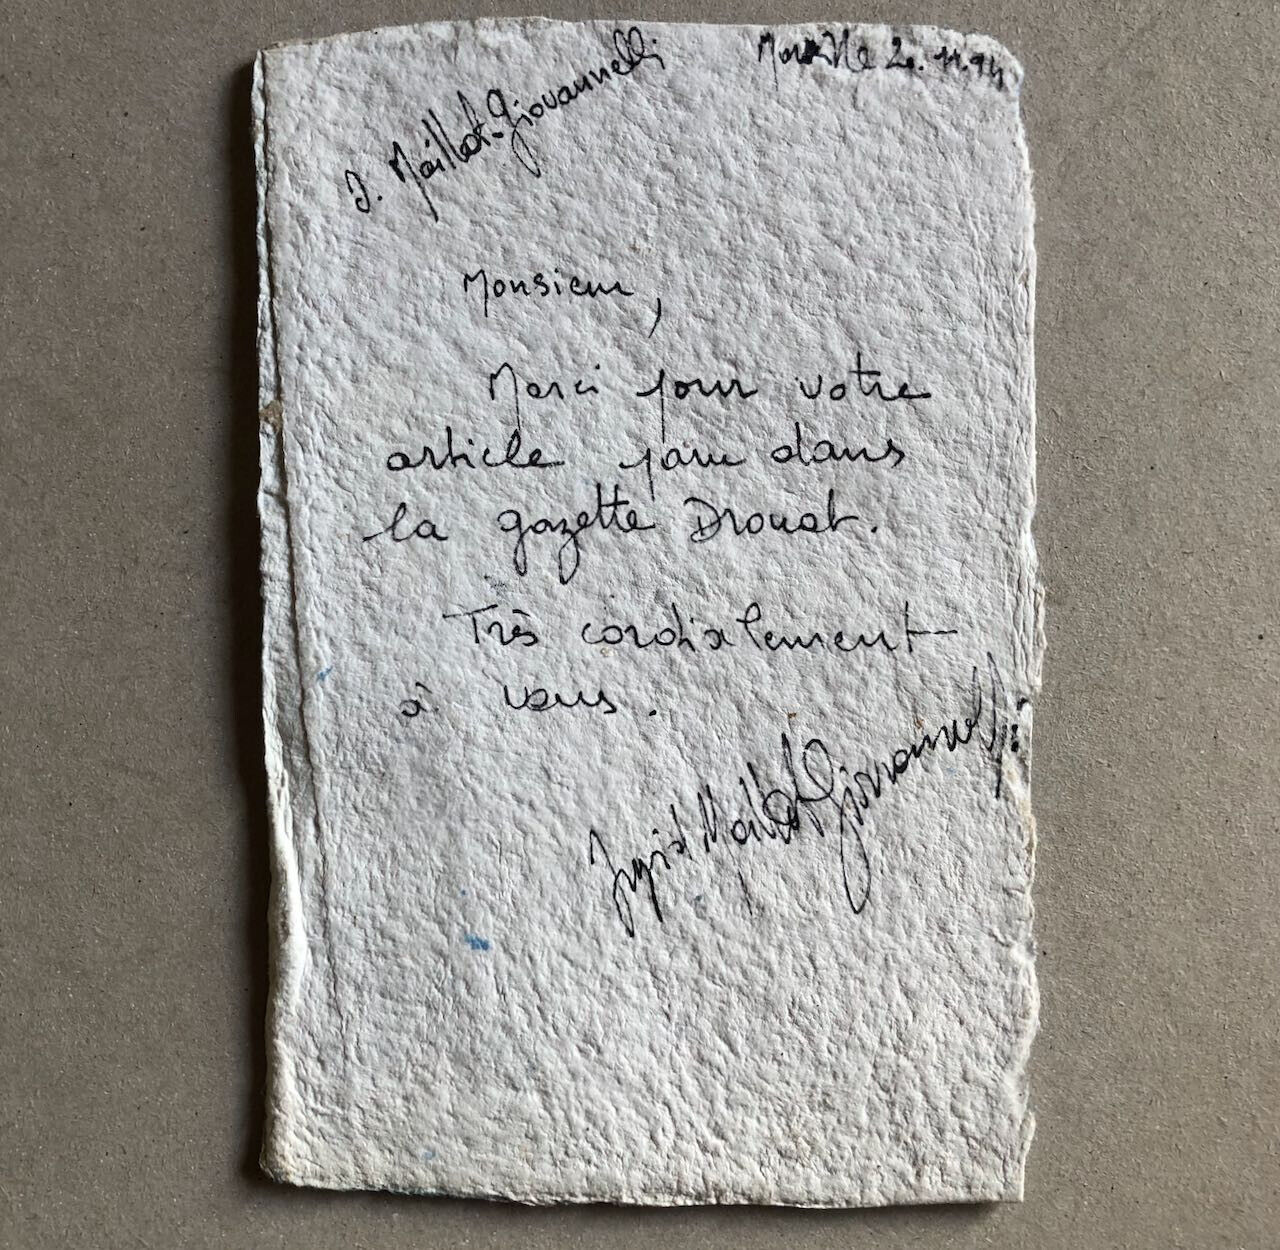 I. Maillot-Giovannelli
Marseille 2. 11.94
Monsieur,
Merci pour votre
article paru dans
la gazette Drouot.
Très cordialement
à vous.
Ingrid Maillot Giovannelli